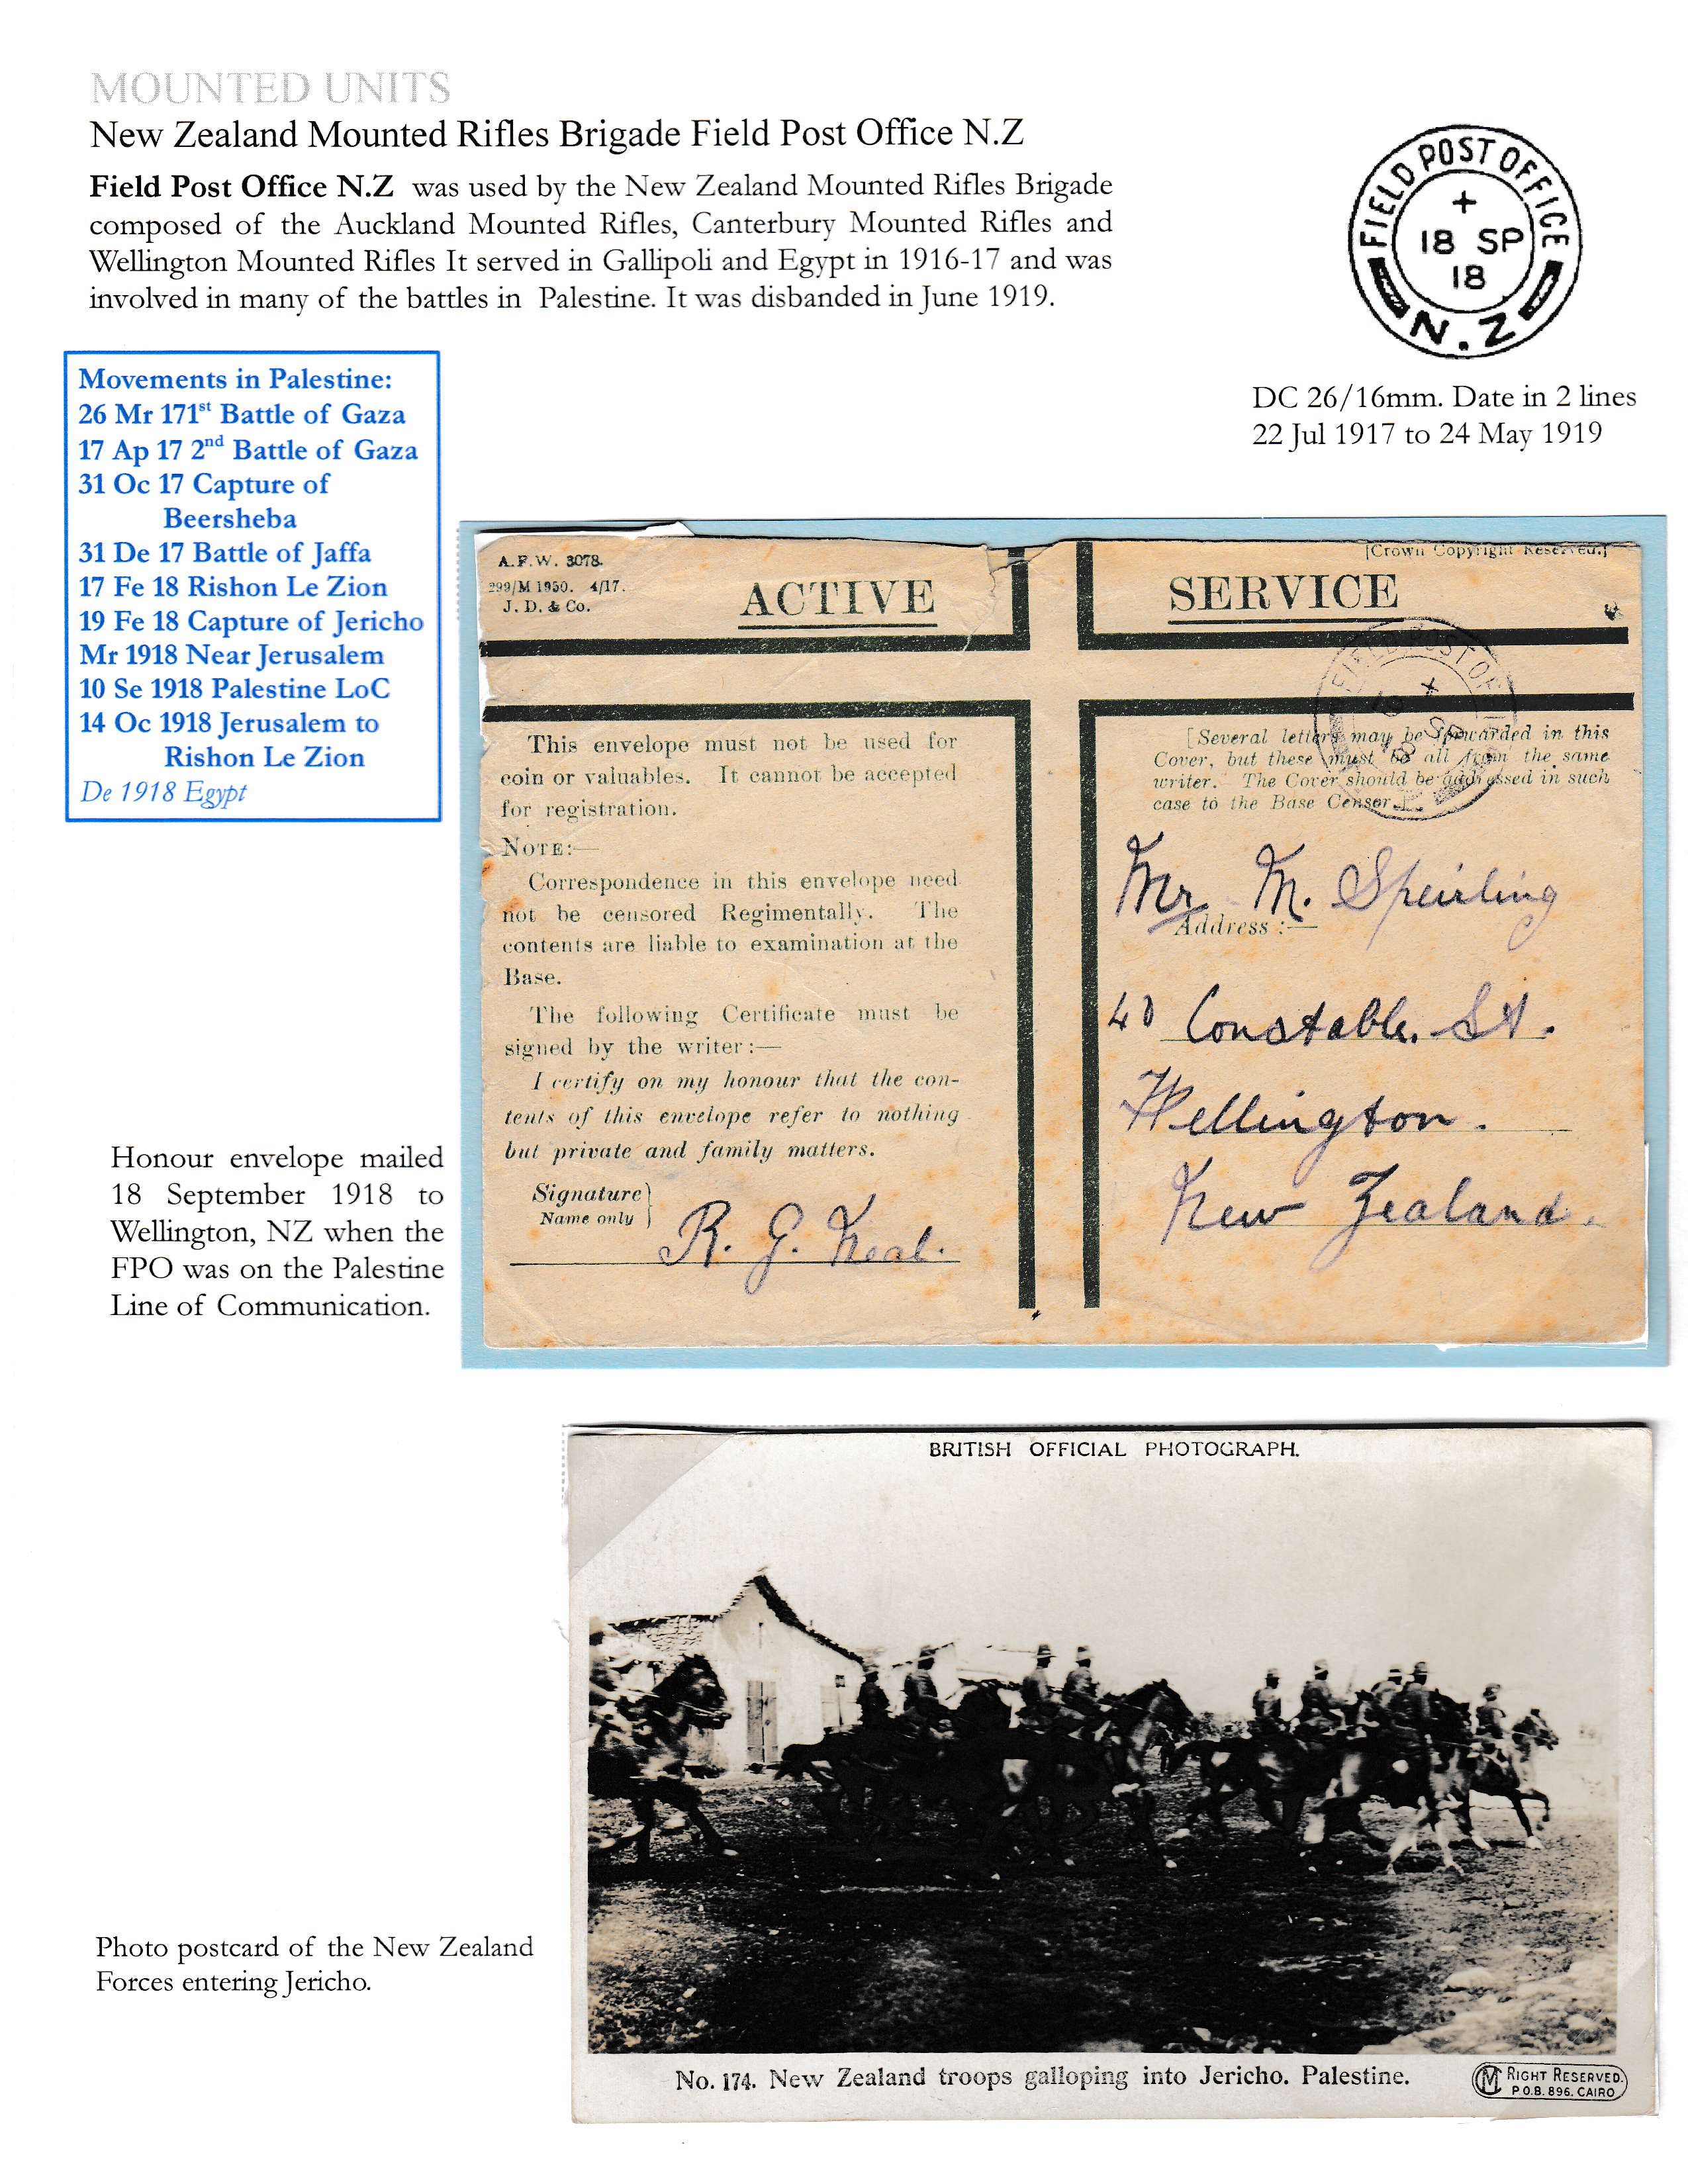 MOUNTED UNITS
New Zealand Mounted Rifles Brigade Field Post Office N.Z
Field Post Office N.Z was used by the New Zealand Mounted Rifles Brigade
composed of the Auckland Mounted Rifles, Canterbury Mounted Rifles and
Wellington Mounted Rifles It served in Gallipoli and Egypt in 1916-17 and was
involved in many of the battles in Palestine. It was disbanded in June 1919.
FIELD POST OFFICE
+
18 SP
18
N.Z
DC 26/16mm. Date in 2 lines
22 Jul 1917 to 24 May 1919
Movements in Palestine:
26 Mr 171st Battle of Gaza
17 Ap 17 2nd Battle of Gaza
31 Oc 17 Capture of
Beersheba
31 De 17 Battle of Jaffa
17 Fe 18 Rishon Le Zion
19 Fe 18 Capture of Jericho
Mr 1918 Near Jerusalem
10 Se 1918 Palestine LoC
14 Oc 1918 Jerusalem to
Rishon Le Zion
De 1918 Egypt
A.F.W. 3078.
299/M 1950. 4/17.
J. D. & Co.
ACTIVE
[Crown Copyright Reserved.]
SERVICE
FIELD POST OF
+
18 SP
18
This envelope must not be used for
coin or valuables. It cannot be accepted
for registration.
NOTE:—
Correspondence in this envelope need
not be censored Regimentally. The
contents are liable to examination at the
Base.
The following Certificate must be
signed by the writer:—
I certify on my honour that the con-
tents of this envelope refer to nothing
but private and family matters.
Signature
Name only
R. G. Neal.
[Several letters may be forwarded in this
Cover, but these must be all from the same
writer. The Cover should be addressed in such
case to the Base Censor.]
Mr M. Speirling
Address :—
Constable St.
Wellington.
New Zealand.
Honour envelope mailed
18 September 1918 to
Wellington, NZ when the
FPO was on the Palestine
Line of Communication.
BRITISH OFFICIAL PHOTOGRAPH.
No. 174. New Zealand troops galloping into Jericho. Palestine.
CM
RIGHT RESERVED.
P.O.B. 896. CAIRO
Photo postcard of the New Zealand
Forces entering Jericho.